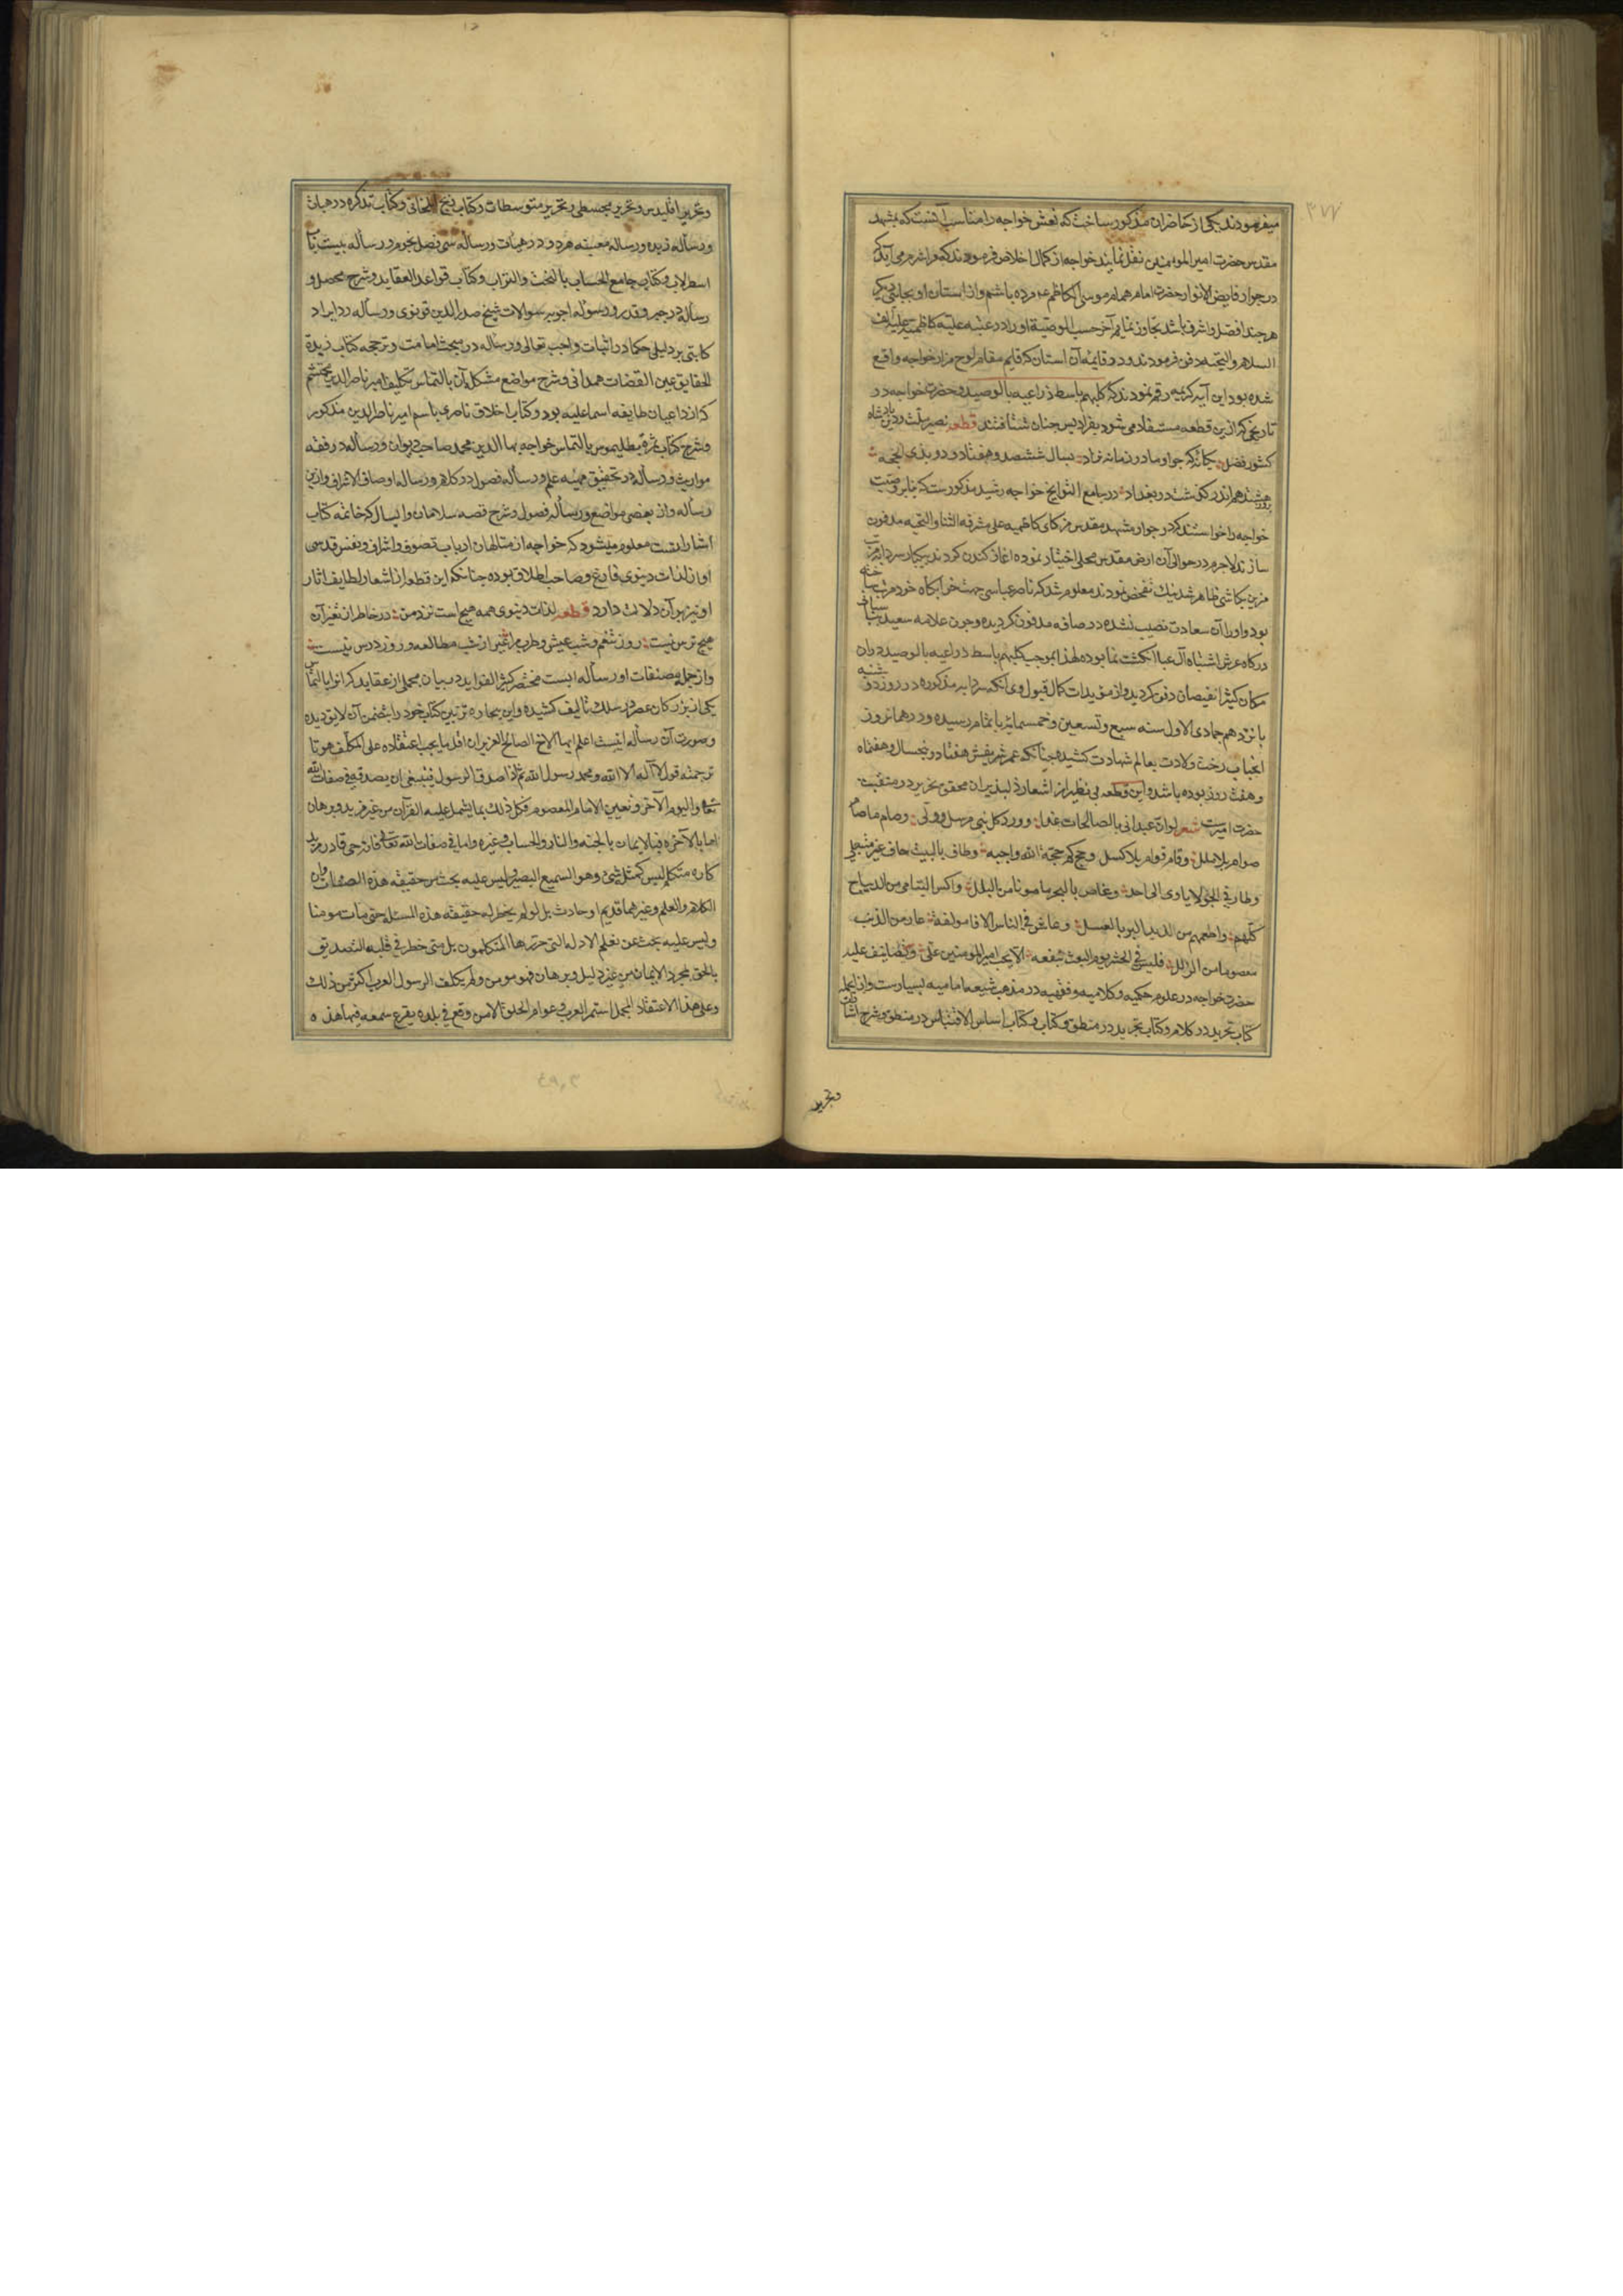 میفرمودند یکی از حاضران مذکور ساخت که نعش خواجه را مناسب آنست که بمشهد
مقدس حضرت امیرالمومنین نقل نمایند خواجه از کمال اخلاص فرمودند که مرا شرم می آید که
در جوار فایض الانوار حضرت امام همام موسی الکاظم ع مرده باشم و از آستان او بجائی دیگر
هر چند افضل و اشرف باشد تجاوز نمایم آخر حسب الوصیة او را در عتبه علیه کاظمیه علیه الف
السلام والتحیه مدفون فرمودند و در قایمه آن استان که قایم مقام لوح مزار خواجه واقع
شده بود این آیه کریمه رقم نمودند که کلبهم باسط ذراعیه بالوصید و حضرت خواجه در
تاریخی که ازین قطعه مستفاد می شود بفرادیس جنان شتافتند قطعه نصیر ملت و دین پادشاه
کشور فضل یکانه که چو او مادر زمانه نزاد بسال ششصد و هفتاد و دو بذی الحجه
بروز هیژدهم اندر گذشت در بغداد در جامع التواریخ خواجه رشید مذکورست که بنابر وصیت
خواجه را خواستند که در جوار مشهد مقدس مزکای کاظمیه علی مشرفه الثنا والتحیه مدفون
سازند لاجرم در حوالی آن ارض مقدس محلی اختیار نموده اغاز کندن کردند بیکبار سردابه مرتب
مزین بکاشی ظاهر شد نیک تفحص نمودند معلوم شد که ناصر عباسی جهت خوابکاه خود مرتب ساخته
بود و او را آن سعادت نصیب نشده در رصافه مدفون کردیده و چون علامه سعید
درکاه عرش اشتباه آل عبا انکشت نما بوده لهذا بموجب کلبهم باسط ذراعیه بالوصید در آن
مکان کثیر الفیضان دفن کردید و از مویدات کمال قبول وی آنکه سردابه مذکوره در روز شنبه
پانزدهم جمادی الاول سنه سبع و تسعین و خمسمائه باتمام رسیده و در همان روز
انجناب رخت ولادت بعالم شهادت کشیده چنانکه عمر شریفش هفتاد و پنج سال و هفت ماه
و هفت روز بوده باشد و این قطعه بی نظیر از اشعار دلپذیر ان محقق نحریر در منقبت
حضرت امیرست شعر لو ان عبدا اتی بالصالحات غدا و ود کل نبی مرسل و ولی و صام ما صام
صوام بلا ملل و قام قوام بلا کسل و حج کم حجة لله واجبه وطاف بالبیت حاف غیر منتعل
و طار فی الجو لا یاوی الی احد و غاص بالبحر مامونا من البلل و اکسی الیتامی من الدیباج
کلهم و اطعمهم من لذیذ البر بالعسل و عاش فی الناس الافا مولفة عار من الذنب
معصوما من الزلل فلیس فی الحشر یوم البعث ینفعه الا بحب امیر المومنین علی و تصانیف علیه
حضرت خواجه در علوم حکمیه و کلامیه و فقهیه در مذهب شیعه امامیه بسیارست و از انجمله
کتاب تجرید در کلام و کتاب تجرید در منطق و کتاب اساس الاقتباس در منطق و شرح اشارات
وتحریر
وتحریر اقلیدس و تحریر مجسطی و تحریر متوسطات و کتاب زیج ایلخانی و کتاب تذکره در هیات
و رساله زبده و رساله معینیه هر دو در هیات و رساله سی فصل نجوم و رساله بیست باب
اسطرلاب و کتاب جامع الحساب بالتخت والتراب و کتاب قواعد العقاید و شرح محصل و
رساله در جبر و قدر و رساله اجوبه سوالات شیخ صدرالدین قونوی و رساله رد ایراد
کاتبی بر دلیل حکما در اثبات واجب تعالی و رساله در مبحث امامت و ترجمه کتاب زبدة
الحقایق عین القضات همدانی و شرح مواضع مشکل آن بالتماس تکلیف امیر ناصرالدین محتشم
که از داعیان طایفه اسماعلیه بود و کتاب اخلاق ناصری باسم امیر ناصرالدین مذکور
و شرح کتاب ثمره بطلیموس بالتماس خواجه بهاالدین محمد صاحب دیوان و رساله در فقه
مواریث و رساله در تحقیق مهیه علم و رساله فصول در کلام و رساله اوصاف الاشراف و ازین
رساله و از بعضی مواضع و رساله فصول و شرح قصه سلامان و ابسال که خاتمه کتاب
اشاراتست معلوم میشود که خواجه از متالهان ارباب تصوف و اشراق و نفس قدسی
او از لذات دنیوی فارغ و صاحب اطلاق بوده چنانکه این قطعه از اشعار لطایف اثار
او نیز بر آن دلالت دارد قطعه لذات دنیوی همه هیچ است نزد من در خاطر از تغیر آن
هیچ ترس نیست روز تنعم و شب عیش و طرب مرا غیر از شب مطالعه و روز درس نیست
و از جمله مصنفات او رساله ایست مختصر کثیر الفواید در بیان مجملی از عقاید که انرا بالتماس
یکی از بزرکان عصر در سلک تالیف کشیده و این بیچاره تزیین کتاب خود را بتضمن آن لایق دیده
و صورت آن رساله اینست اعلم ایها الاخ الصالح العزیز ان اقل ما یجب اعتقاده علی المکلف هو ما
ترجمته قول لا اله الا الله و محمد رسول الله ثم اذا صدق الرسول فینبغی ان یصدقه فی صفات الله
تعالی والیوم الآخر و تعیین الامام المعصوم فکل ذلک بما یشتمل علیه القرآن من غیر مزید و برهان
اما بالآخرة فبالایمان بالجنه والنار والحساب و غیره و اما فی صفات الله تعالی فانه حی قادر مرید
کاره متکلم لیس کمثله شیء وهو السمیع البصیر و لیس علیه بحث من حقیقه هذه الصفات وان
الکلام والعلم و غیرهما قدیم او حادث بل لو لم یخطر له حقیقة هذه المسئله حتی مات مومنا
ولیس علیه بحث عن تعلم الادله التی حررها المتکلمون بل متی خطر فی قلبه التصدیق
بالحق بمجرد الایمان من غیر دلیل و برهان فهو مومن ولم یکلف الرسول العرب اکثر من ذلک
وعلی هذا الاعتقاد المجمل استمر العرب و عوام الخلق الا من وقع فی بلده یقرع سمعه فیها هذه